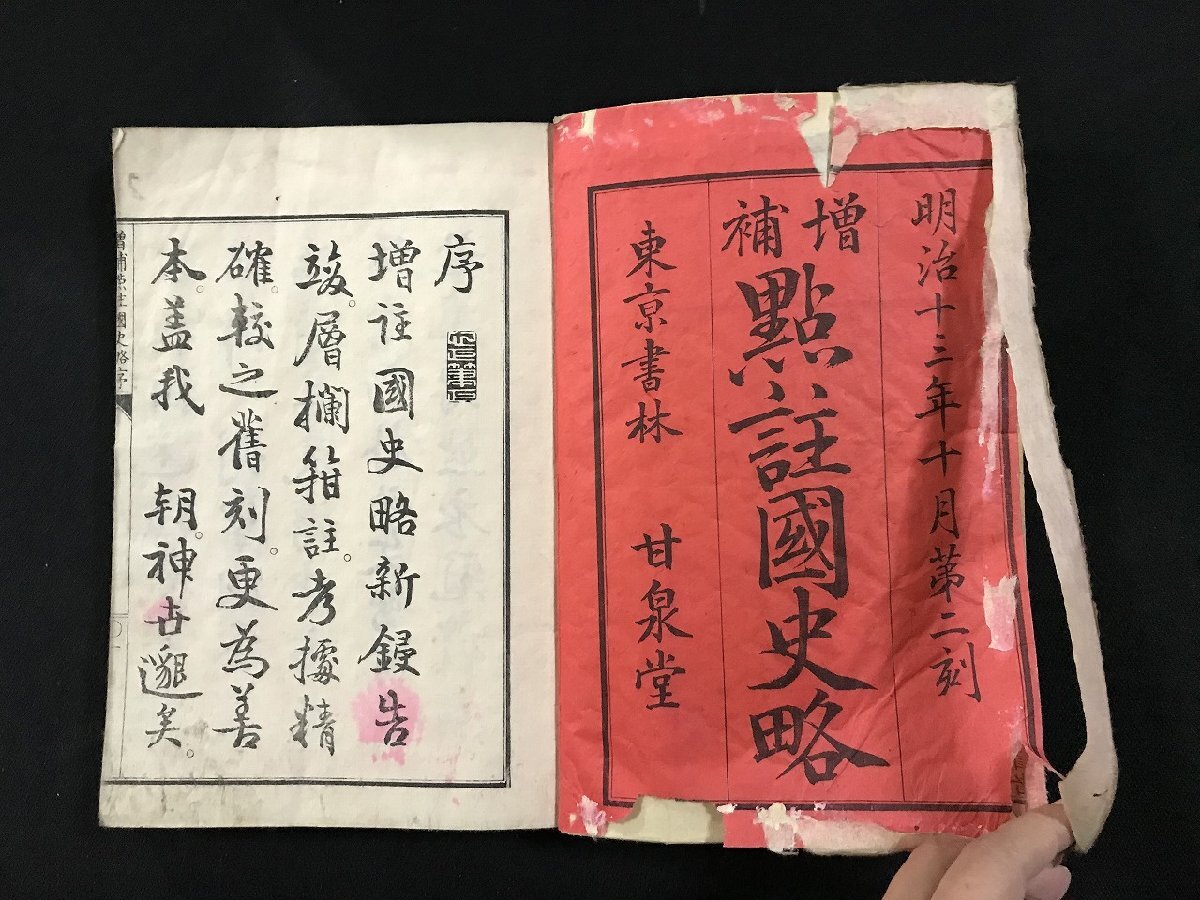 明治十三年十月第二刻
增補
點註國史略
東京書林 甘泉堂
序
增註國史略新鋟告
竣。層欄箝註。考據精
確。較之舊刻。更為善
本。盖我 朝。神古邈矣。
增補點註國史略序